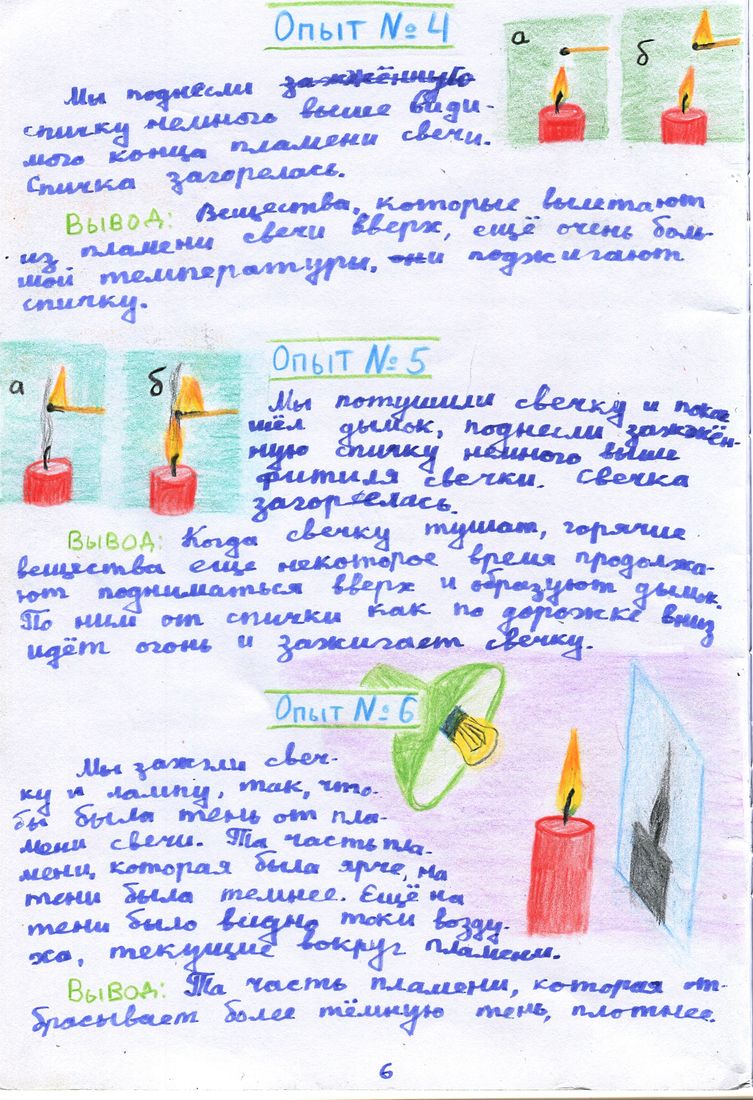 Опыт № 4
а
б
Мы поднесли зажжённую
спичку немного выше види-
мого конца пламени свечи.
Спичка загорелась.
Вывод: Вещества, которые вылетают
из пламени свечи вверх, ещё очень боль-
шой температуры, они поджигают
спичку.
Опыт № 5
а
б
Мы потушили свечку и пока
шёл дымок, поднесли зажжён-
ную спичку немного выше
фитиля свечки. Свечка
загорелась.
Вывод: Когда свечку тушат, горячие
вещества ещё некоторое время продолжа-
ют подниматься вверх и образуют дымок.
По ним от спички как по дорожке вниз
идёт огонь и зажигает свечку.
Опыт № 6
Мы зажгли свеч-
ку и лампу, так, что-
бы была тень от пла-
мени свечи. Та часть пла-
мени, которая была ярче, на
тени была темнее. Ещё на
тени было видно токи возду-
ха, текущие вокруг пламени.
Вывод: Та часть пламени, которая от-
брасывает более тёмную тень, плотнее.
6